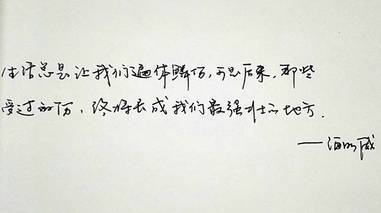 生活总是让我们遍体鳞伤，可是后来，那些
受过的伤，终将长成我们最强壮的地方．
——海明威